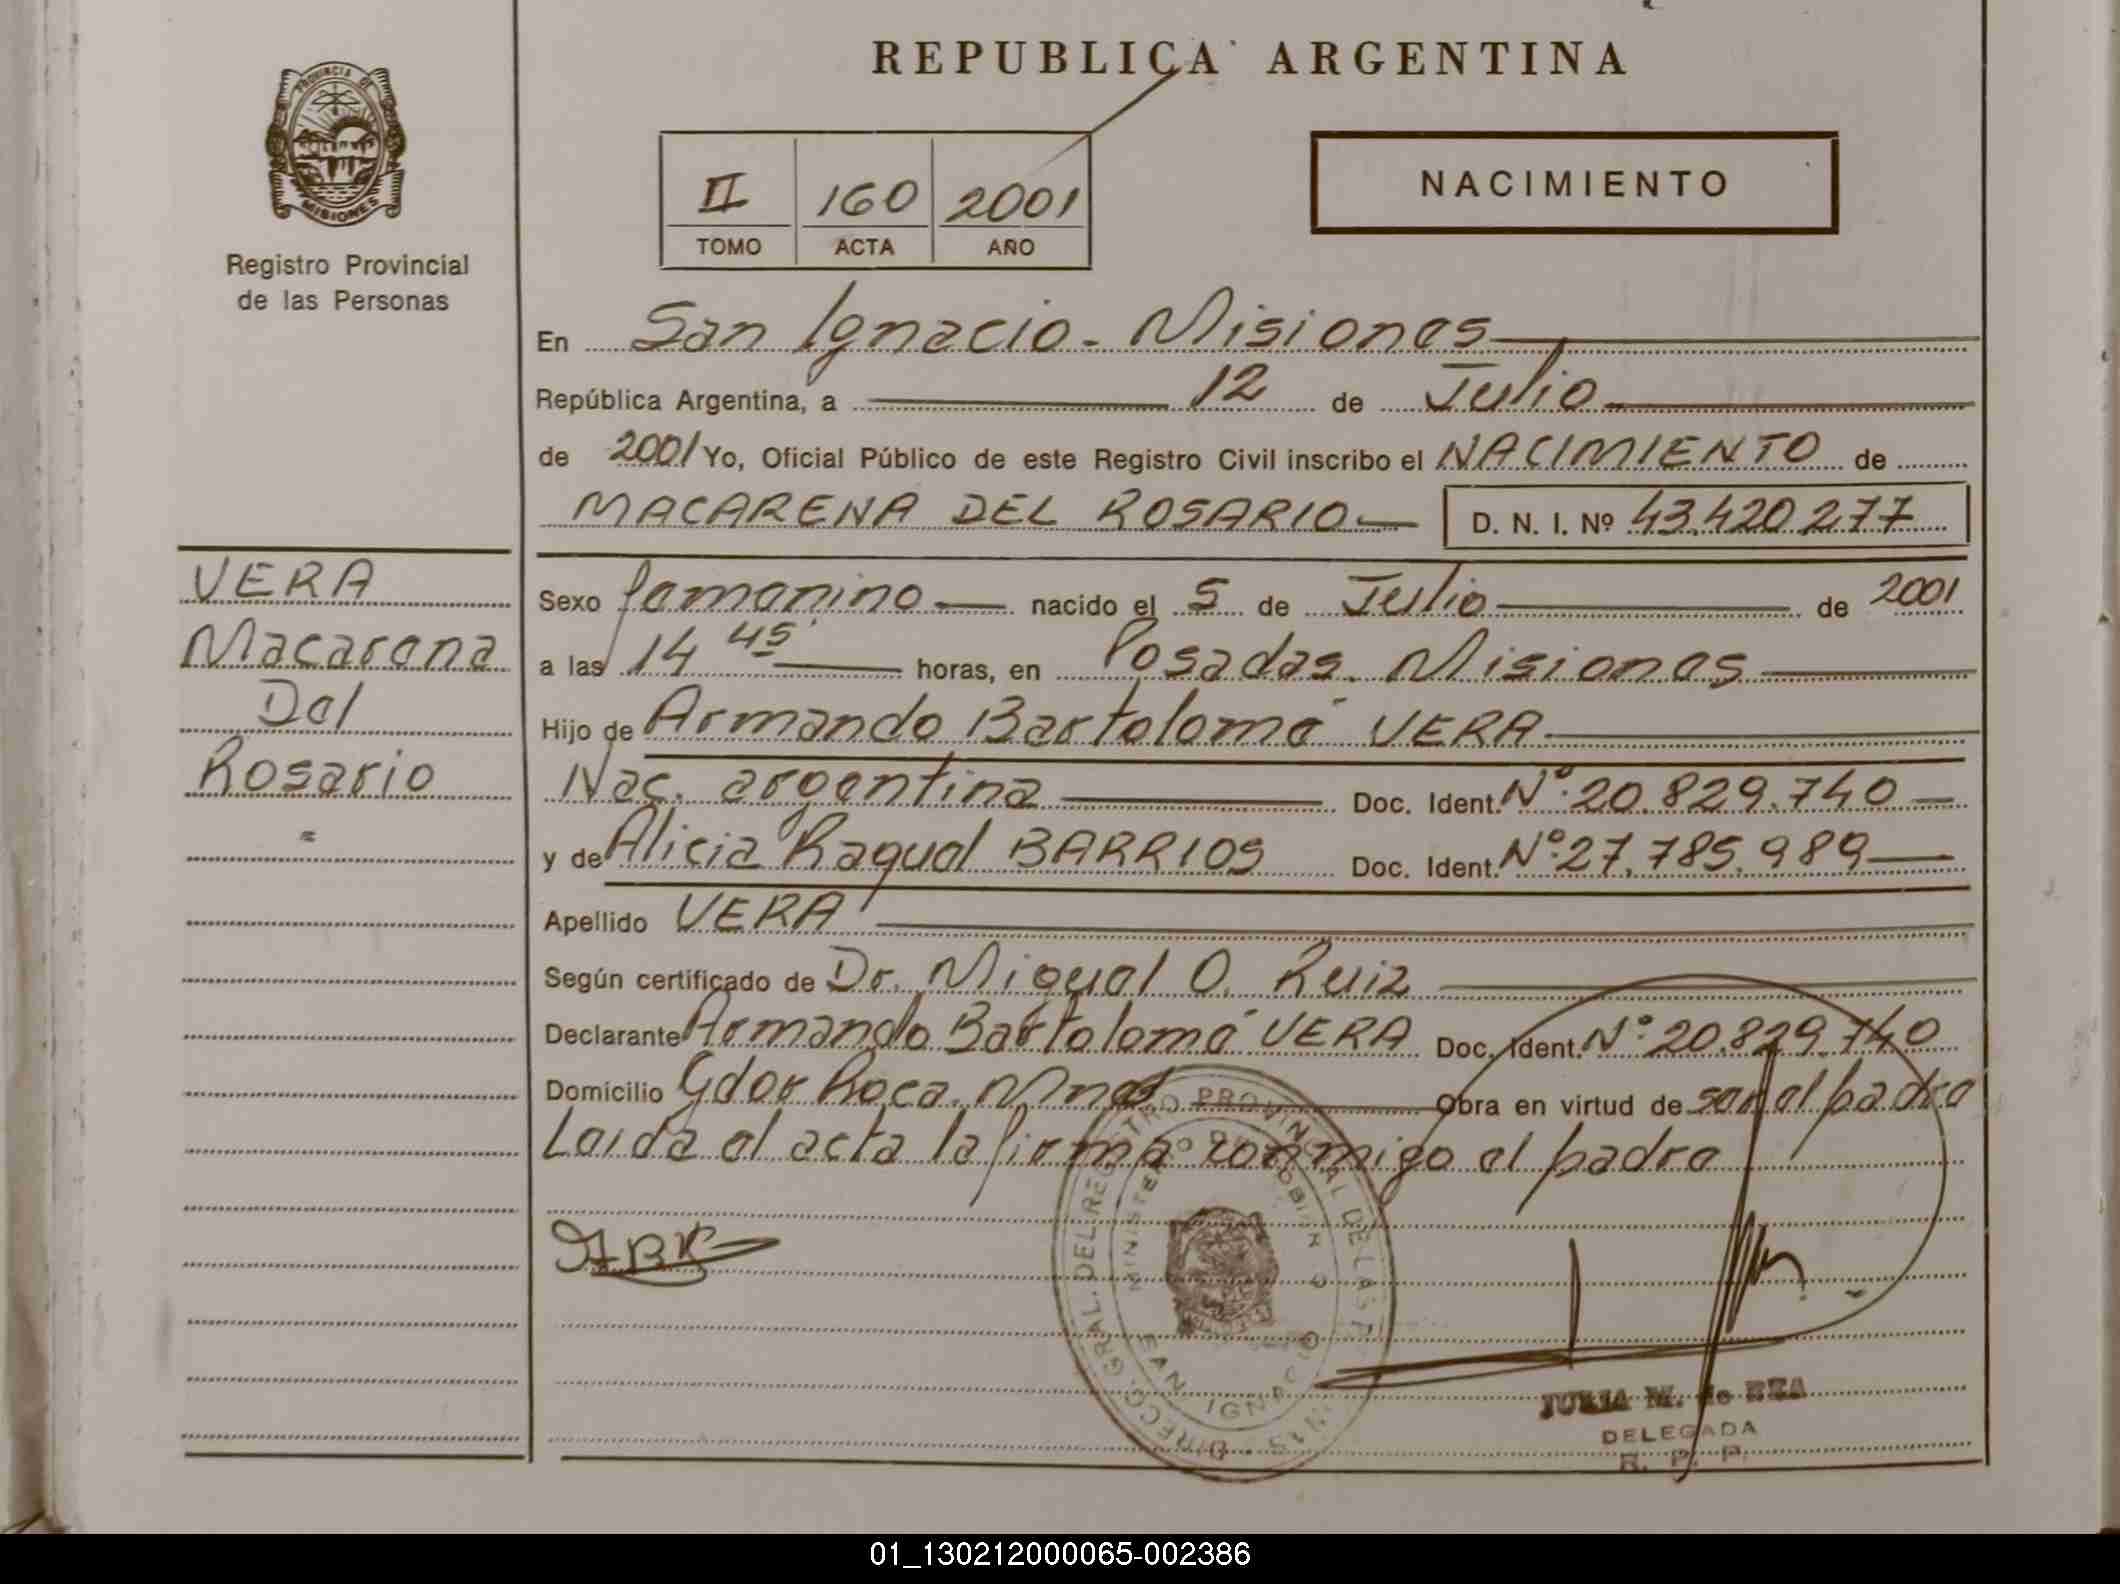 REPUBLICA ARGENTINA
PROVINCIA DE
MISIONES
Registro Provincial
de las Personas
II 160 2001
TOMO ACTA AÑO
NACIMIENTO
En San Ignacio - Misiones
República Argentina, a 12 de Julio
de 2001 Yo, Oficial Público de este Registro Civil inscribo el NACIMIENTO de
MACARENA DEL ROSARIO D. N. I. Nº 43.420.277
VERA
Macarena
Del
Rosario
Sexo femenino nacido el 5 de Julio de 2001
a las 14 45 horas, en Posadas. Misiones
Hijo de Armando Bartolomé VERA
Nac. argentina Doc. Ident. Nº 20.829.740
y de Alicia Raquel BARRIOS Doc. Ident. Nº 27.785.989
Apellido VERA
Según certificado de Dr. Miguel O. Ruiz
Declarante Armando Bartolomé VERA Doc. Ident. Nº 20.829.740
Domicilio Gdor Roca. Mnes Obra en virtud de ser el padre
Leida el acta la firma conmigo el padre
DIRECC. GRAL. DEL REGISTRO PROVINCIAL DE LAS P.
MINISTERIO DE GOBIERNO
SAN IGNACIO
DELEGADA
R. P. P.
01_130212000065-002386